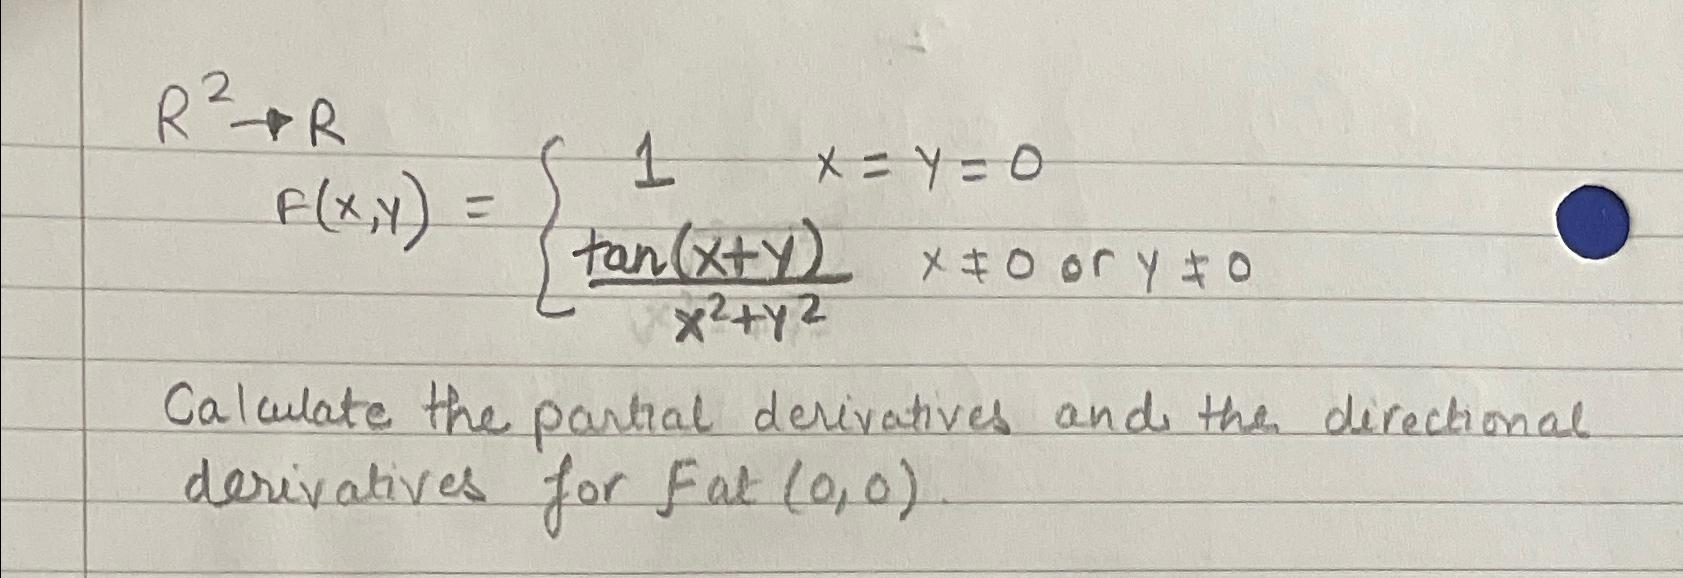 R² → R
F(x,y) = { 1 x = y = 0
tan(x+y) / x²+y² x ≠ 0 or y ≠ 0
Calculate the partial derivatives and the directional
derivatives for F at (0,0).